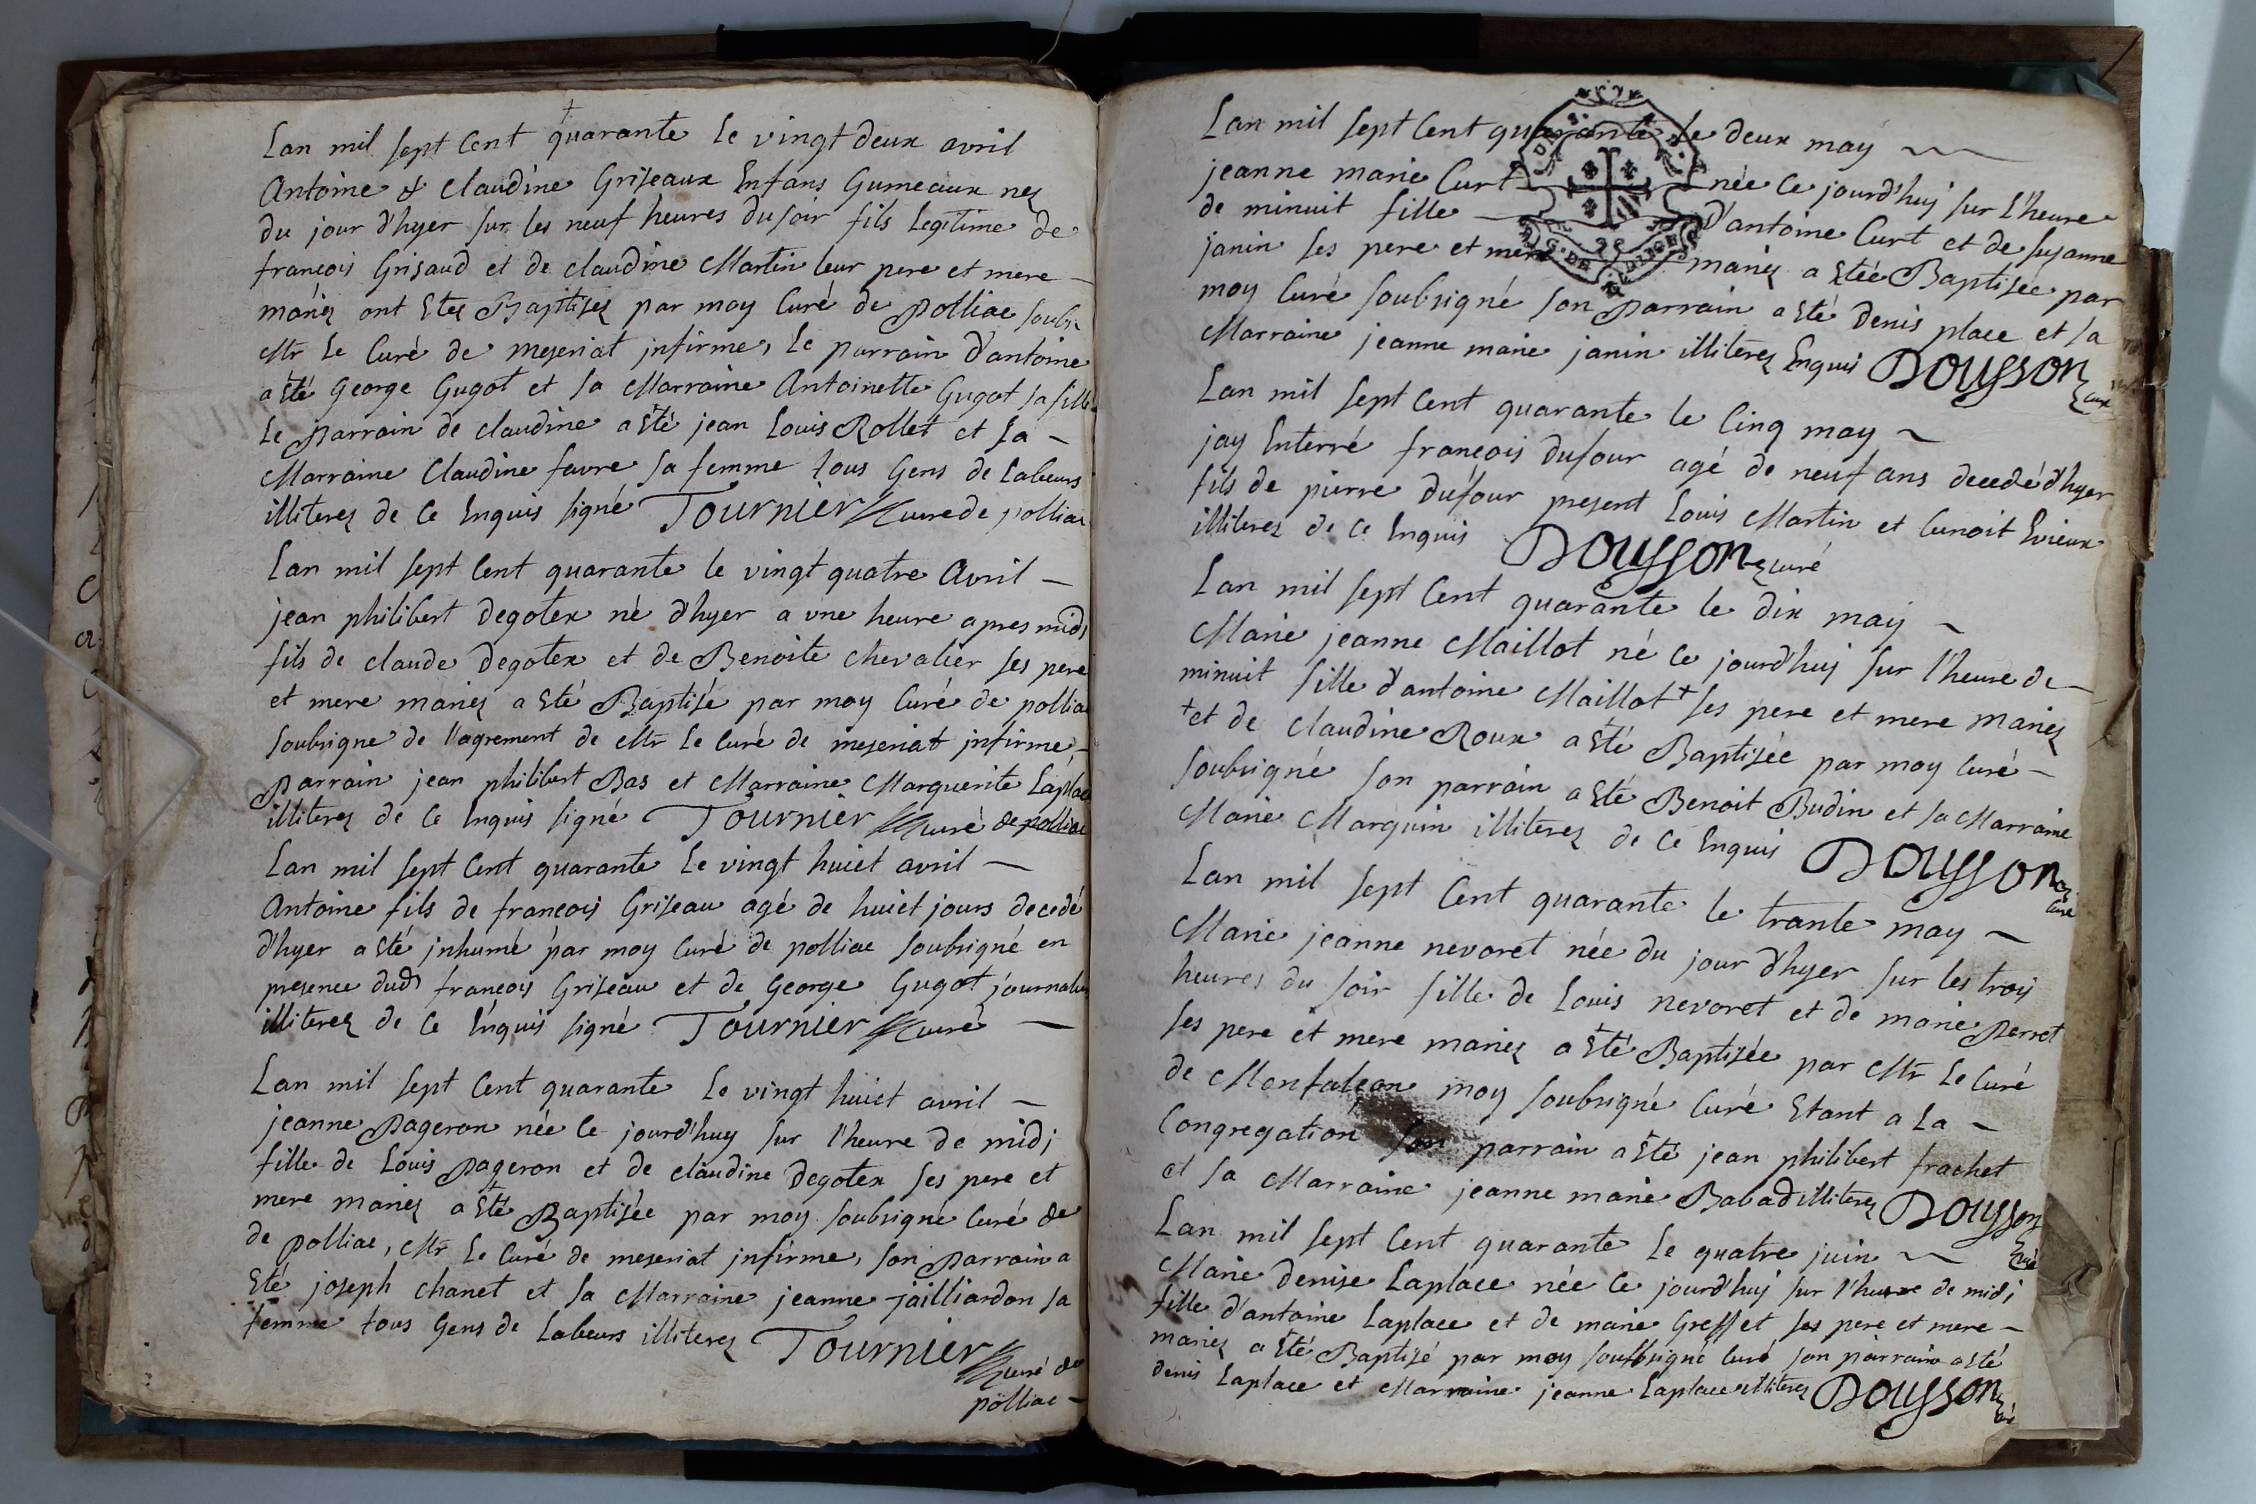 Lan mil sept Cent quarante Le vingt deux avril
Antoine & claudine Griseaux Enfans Gumeaux nez
du jour d'hyer sur les neuf heures du soir fils Legitime de
francois Grisaud et de claudine Martin leur pere et mere
mariez ont Etez Baptisez par moy Curé de polliac soubs.
Mr Le Curé de meseriat jnfirme, Le parrain d'antoine
a Eté George Gugot et sa Marraine Antoinette Gugot sa fille
Le parrain de claudine a Eté jean Louis Rollet et sa
Marraine Claudine favre sa femme tous Gens de Labeurs
illiterez de Ce Enquis signé Tournier curé de polliac
Lan mil sept Cent quarante le vingt quatre Avril
jean philibert degotex né d'hyer a une heure apres midj
fils de claude degotex et de Benoite chevalier ses pere
et mere mariez a Eté Baptisé par moy Curé de polliac
soubsigne de l'agrement de Mr Le Curé de meseriat jnfirme
parrain jean philibert Bas et Marraine Marguerite Laplace
illiterez de Ce Enquis signé Tournier curé de polliac
Lan mil sept Cent quarante Le vingt huict avril
Antoine fils de francois Griseau agé de huict jours decedé
d'hyer a Eté jnhumé par moy Curé de polliac soubsigné en
presence dud francois Griseau et de George Gugot journalier
illiterez de Ce Enquis signé Tournier curé
Lan mil sept Cent quarante Le vingt huict avril
jeanne pageron née Ce jourd'huy sur l'heure de midj
fille de Louis pageron et de claudine degotex ses pere et
mere mariez a Eté Baptisée par moy soubsigné Curé de
de polliac, Mr Le Curé de meseriat jnfirme, son parrain a
Eté joseph chanet et sa Marraine jeanne jailliardon sa
femme tous Gens de Labeurs illiterez Tournier curé de
polliac
Lan mil sept Cent quarante le deux may
jeanne marie Curt née Ce jourd'huj sur l'heure
de minuit fille d'antoine Curt et de susanne
janin ses pere et mere mariez a Etée Baptisée par
moy Curé soubsigné son parrain a Eté denis place et sa
Marraine jeanne marie janin illiterez Enquis Dousson
curé
Lan mil sept Cent quarante le Cinq may
jay Enterré françois dufour agé de neuf ans decedé d'hyer
fils de pierre dufour present Louis Martin et Evieux
illiterez de Ce Enquis Dousson curé
Lan mil sept Cent quarante le dix may
Marie jeanne Maillot né Ce jourd'huj sur l'heure de
minuit fille d'antoine Maillot + ses pere et mere mariez
+ et de claudine Roux a Eté Baptisée par moy Curé
soubsigné son parrain a Eté Benoit Budin et sa Marraine
Marie Marquin illiterez de Ce Enquis Dousson
curé
Lan mil sept Cent quarante le trante may
Marie jeanne nevoret née du jour d'hyer sur les trois
heures du soir fille de Louis nevoret et de marie perret
ses pere et mere mariez a Eté Baptisée par Mr Le Curé
de Monfalcon moy soubsigné Curé Etant a La
Congregation son parrain a Eté jean philibert frachet
et sa Marraine jeanne marie Babad illiterez Dousson
Curé
Lan mil sept Cent quarante Le quatre juin
Marie denise Laplace née Ce jourd'huj sur l'heure de midj
fille d'antoine Laplace et de marie Greffet ses pere et mere
mariez a Eté Baptisé par moy soubsigné Curé son parrain a Eté
denis Laplace et Marraine jeanne Laplace illiterez Dousson